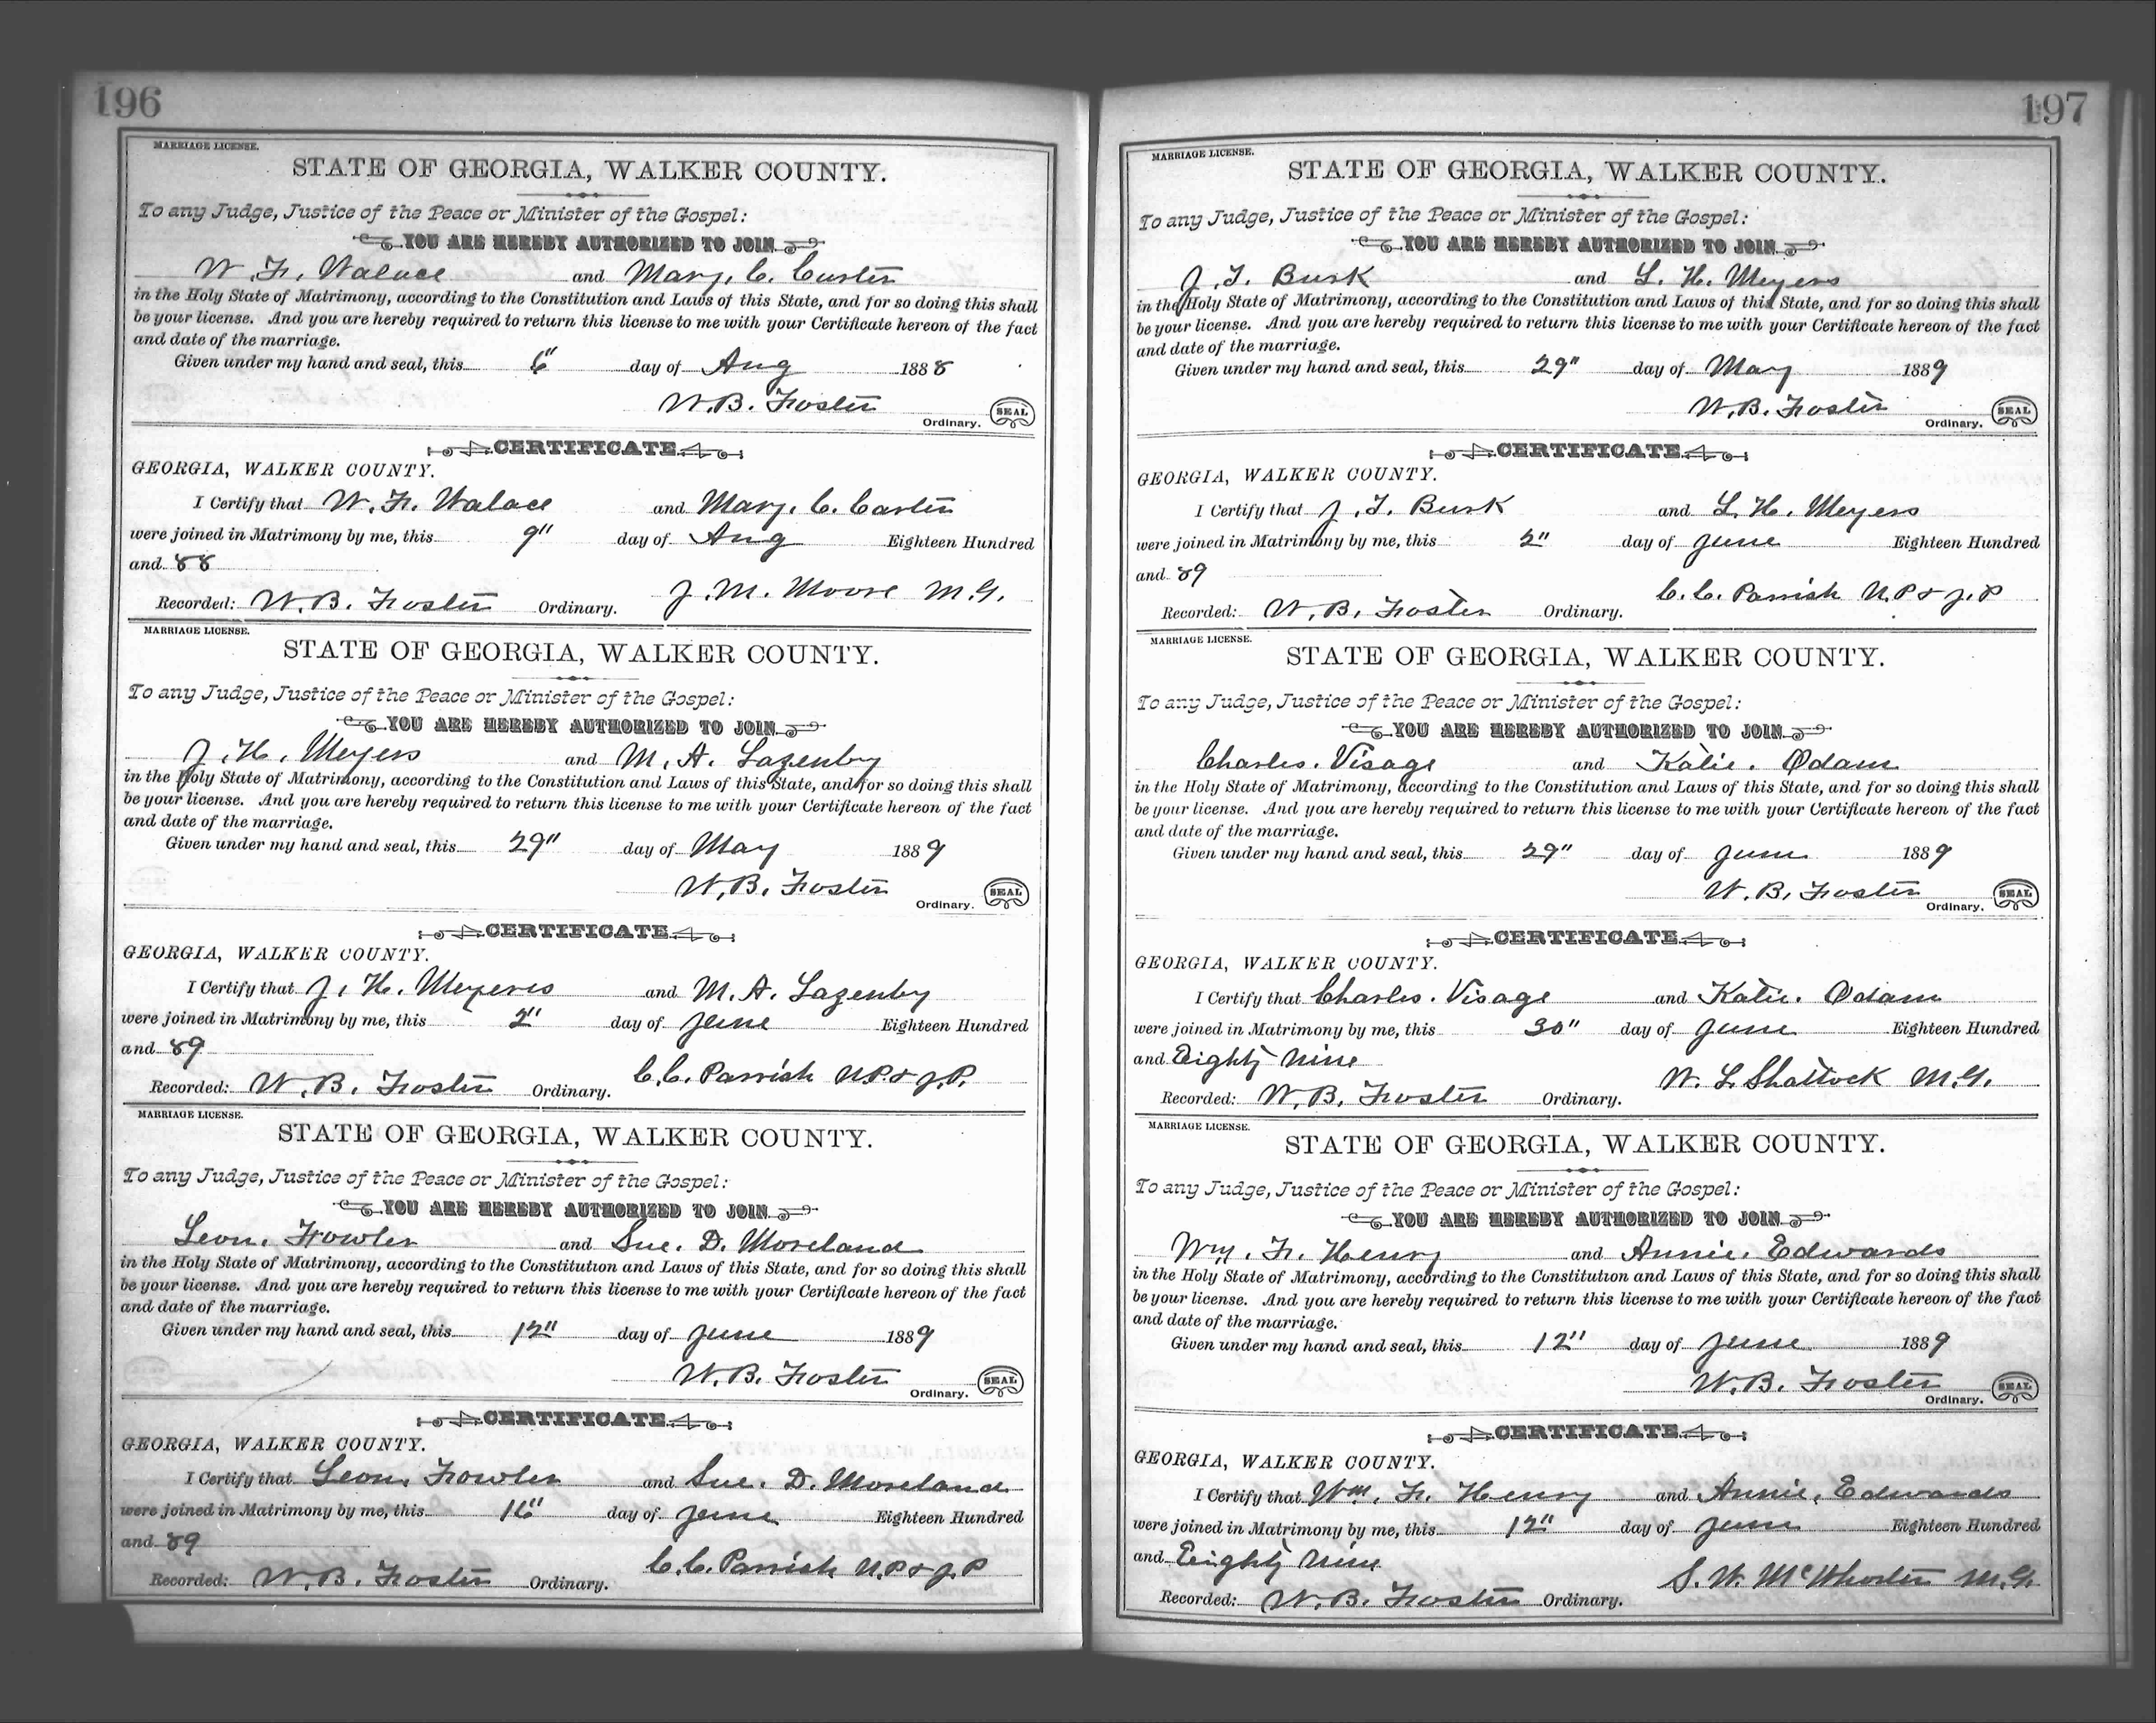 196
MARRIAGE LICENSE.
STATE OF GEORGIA, WALKER COUNTY.
To any Judge, Justice of the Peace or Minister of the Gospel:
YOU ARE HEREBY AUTHORIZED TO JOIN
W. F. Walace and Mary. C. Carter
in the Holy State of Matrimony, according to the Constitution and Laws of this State, and for so doing this shall
be your license. And you are hereby required to return this license to me with your Certificate hereon of the fact
and date of the marriage.
Given under my hand and seal, this 6" day of Aug 1888
W. B. Foster
Ordinary. SEAL
CERTIFICATE
GEORGIA, WALKER COUNTY.
I Certify that W. F. Walace and Mary. C. Carter
were joined in Matrimony by me, this 9" day of Aug Eighteen Hundred
and 88
Recorded: W. B. Foster Ordinary. J. M. Moore M.G.
MARRIAGE LICENSE.
STATE OF GEORGIA, WALKER COUNTY.
To any Judge, Justice of the Peace or Minister of the Gospel:
YOU ARE HEREBY AUTHORIZED TO JOIN
J. H. Meyers and M. A. Lazenby
in the Holy State of Matrimony, according to the Constitution and Laws of this State, and for so doing this shall
be your license. And you are hereby required to return this license to me with your Certificate hereon of the fact
and date of the marriage.
Given under my hand and seal, this 29" day of May 1889
W. B. Foster
Ordinary. SEAL
CERTIFICATE
GEORGIA, WALKER COUNTY.
I Certify that J. H. Meyers and M. A. Lazenby
were joined in Matrimony by me, this 2" day of June Eighteen Hundred
and 89
Recorded: W. B. Foster Ordinary. C. C. Parrish N.P. & J.P.
MARRIAGE LICENSE.
STATE OF GEORGIA, WALKER COUNTY.
To any Judge, Justice of the Peace or Minister of the Gospel:
YOU ARE HEREBY AUTHORIZED TO JOIN
Leon. Fowler and Sue. D. Moreland
in the Holy State of Matrimony, according to the Constitution and Laws of this State, and for so doing this shall
be your license. And you are hereby required to return this license to me with your Certificate hereon of the fact
and date of the marriage.
Given under my hand and seal, this 12" day of June 1889
W. B. Foster
Ordinary. SEAL
CERTIFICATE
GEORGIA, WALKER COUNTY.
I Certify that Leon. Fowler and Sue. D. Moreland
were joined in Matrimony by me, this 16" day of June Eighteen Hundred
and 89
Recorded: W. B. Foster Ordinary. C. C. Parrish N.P & J.P
197
MARRIAGE LICENSE.
STATE OF GEORGIA, WALKER COUNTY.
To any Judge, Justice of the Peace or Minister of the Gospel:
YOU ARE HEREBY AUTHORIZED TO JOIN
J. T. Busk and L. H. Meyers
in the Holy State of Matrimony, according to the Constitution and Laws of this State, and for so doing this shall
be your license. And you are hereby required to return this license to me with your Certificate hereon of the fact
and date of the marriage.
Given under my hand and seal, this 29" day of May 1889
W. B. Foster
Ordinary. SEAL
CERTIFICATE
GEORGIA, WALKER COUNTY.
I Certify that J. T. Busk and L. H. Meyers
were joined in Matrimony by me, this 2" day of June Eighteen Hundred
and 89
Recorded: W. B. Foster Ordinary. C. C. Parrish N.P & J.P
MARRIAGE LICENSE.
STATE OF GEORGIA, WALKER COUNTY.
To any Judge, Justice of the Peace or Minister of the Gospel:
YOU ARE HEREBY AUTHORIZED TO JOIN
Charles. Visage and Katie. Odam
in the Holy State of Matrimony, according to the Constitution and Laws of this State, and for so doing this shall
be your license. And you are hereby required to return this license to me with your Certificate hereon of the fact
and date of the marriage.
Given under my hand and seal, this 29" day of June 1889
W. B. Foster
Ordinary. SEAL
CERTIFICATE
GEORGIA, WALKER COUNTY.
I Certify that Charles. Visage and Katie. Odam
were joined in Matrimony by me, this 30" day of June Eighteen Hundred
and Eighty Nine
Recorded: W. B. Foster Ordinary. W. L. Shattock M.G.
MARRIAGE LICENSE.
STATE OF GEORGIA, WALKER COUNTY.
To any Judge, Justice of the Peace or Minister of the Gospel:
YOU ARE HEREBY AUTHORIZED TO JOIN
Wm. F. Henry and Annie. Edwards
in the Holy State of Matrimony, according to the Constitution and Laws of this State, and for so doing this shall
be your license. And you are hereby required to return this license to me with your Certificate hereon of the fact
and date of the marriage.
Given under my hand and seal, this 12" day of June 1889
W. B. Foster
Ordinary. SEAL
CERTIFICATE
GEORGIA, WALKER COUNTY.
I Certify that Wm. F. Henry and Annie. Edwards
were joined in Matrimony by me, this 12" day of June Eighteen Hundred
and Eighty Nine
Recorded: W. B. Foster Ordinary. S. W. McWhorter M.G.